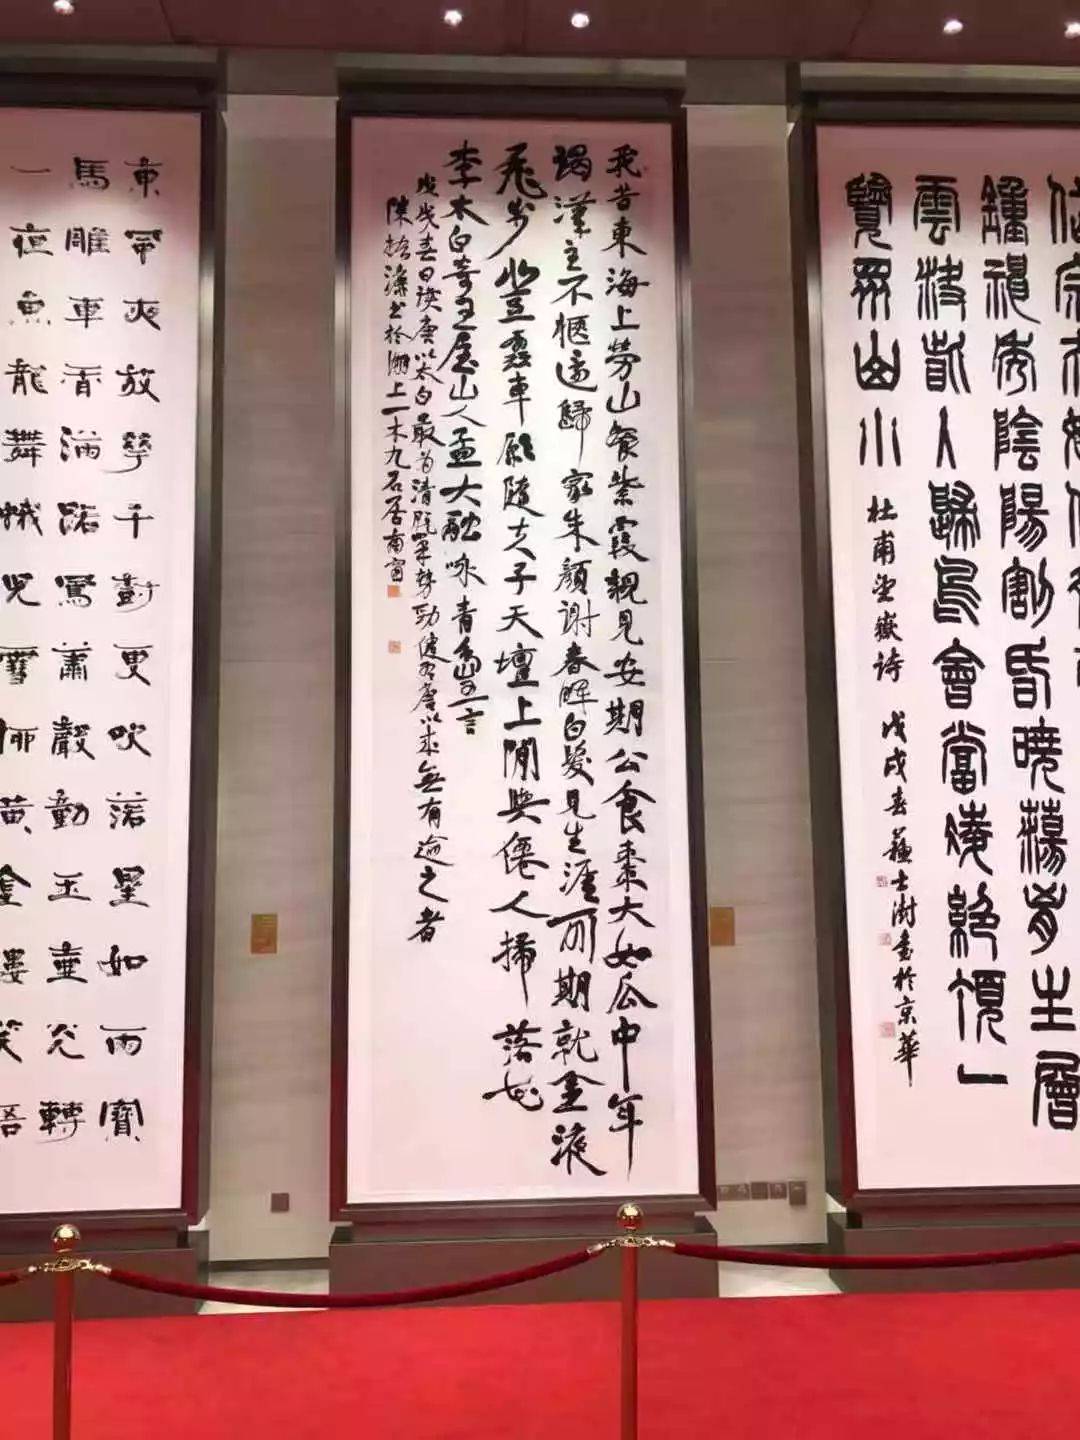 岱宗夫如
鍾神秀陰陽割昏曉蕩胸生層
雲決眥入歸鳥會當凌絕頂一
覽眾山小
杜甫望嶽詩 戊戌春蘇士澍書於京華
我昔東海上勞山餐紫霞親見安期公食棗大如瓜中年
謁漢主不愜還歸家朱顏謝春暉白髮見生涯所期就金液
飛步登雲車願隨夫子天壇上閒與僊人掃落花
李太白寄王屋山人孟大融咏青島之言
戊戌春日讀唐以太白最為清曠筆勢勁健唐以來無有逾之者
陳振濂書於湖上一木九石居南窗
東風夜放華千尌更吹落星如雨寶
馬雕車香滿路鳳簫聲動玉壺光轉
一夜魚龍舞蛾兒雪柳黃金縷笑語